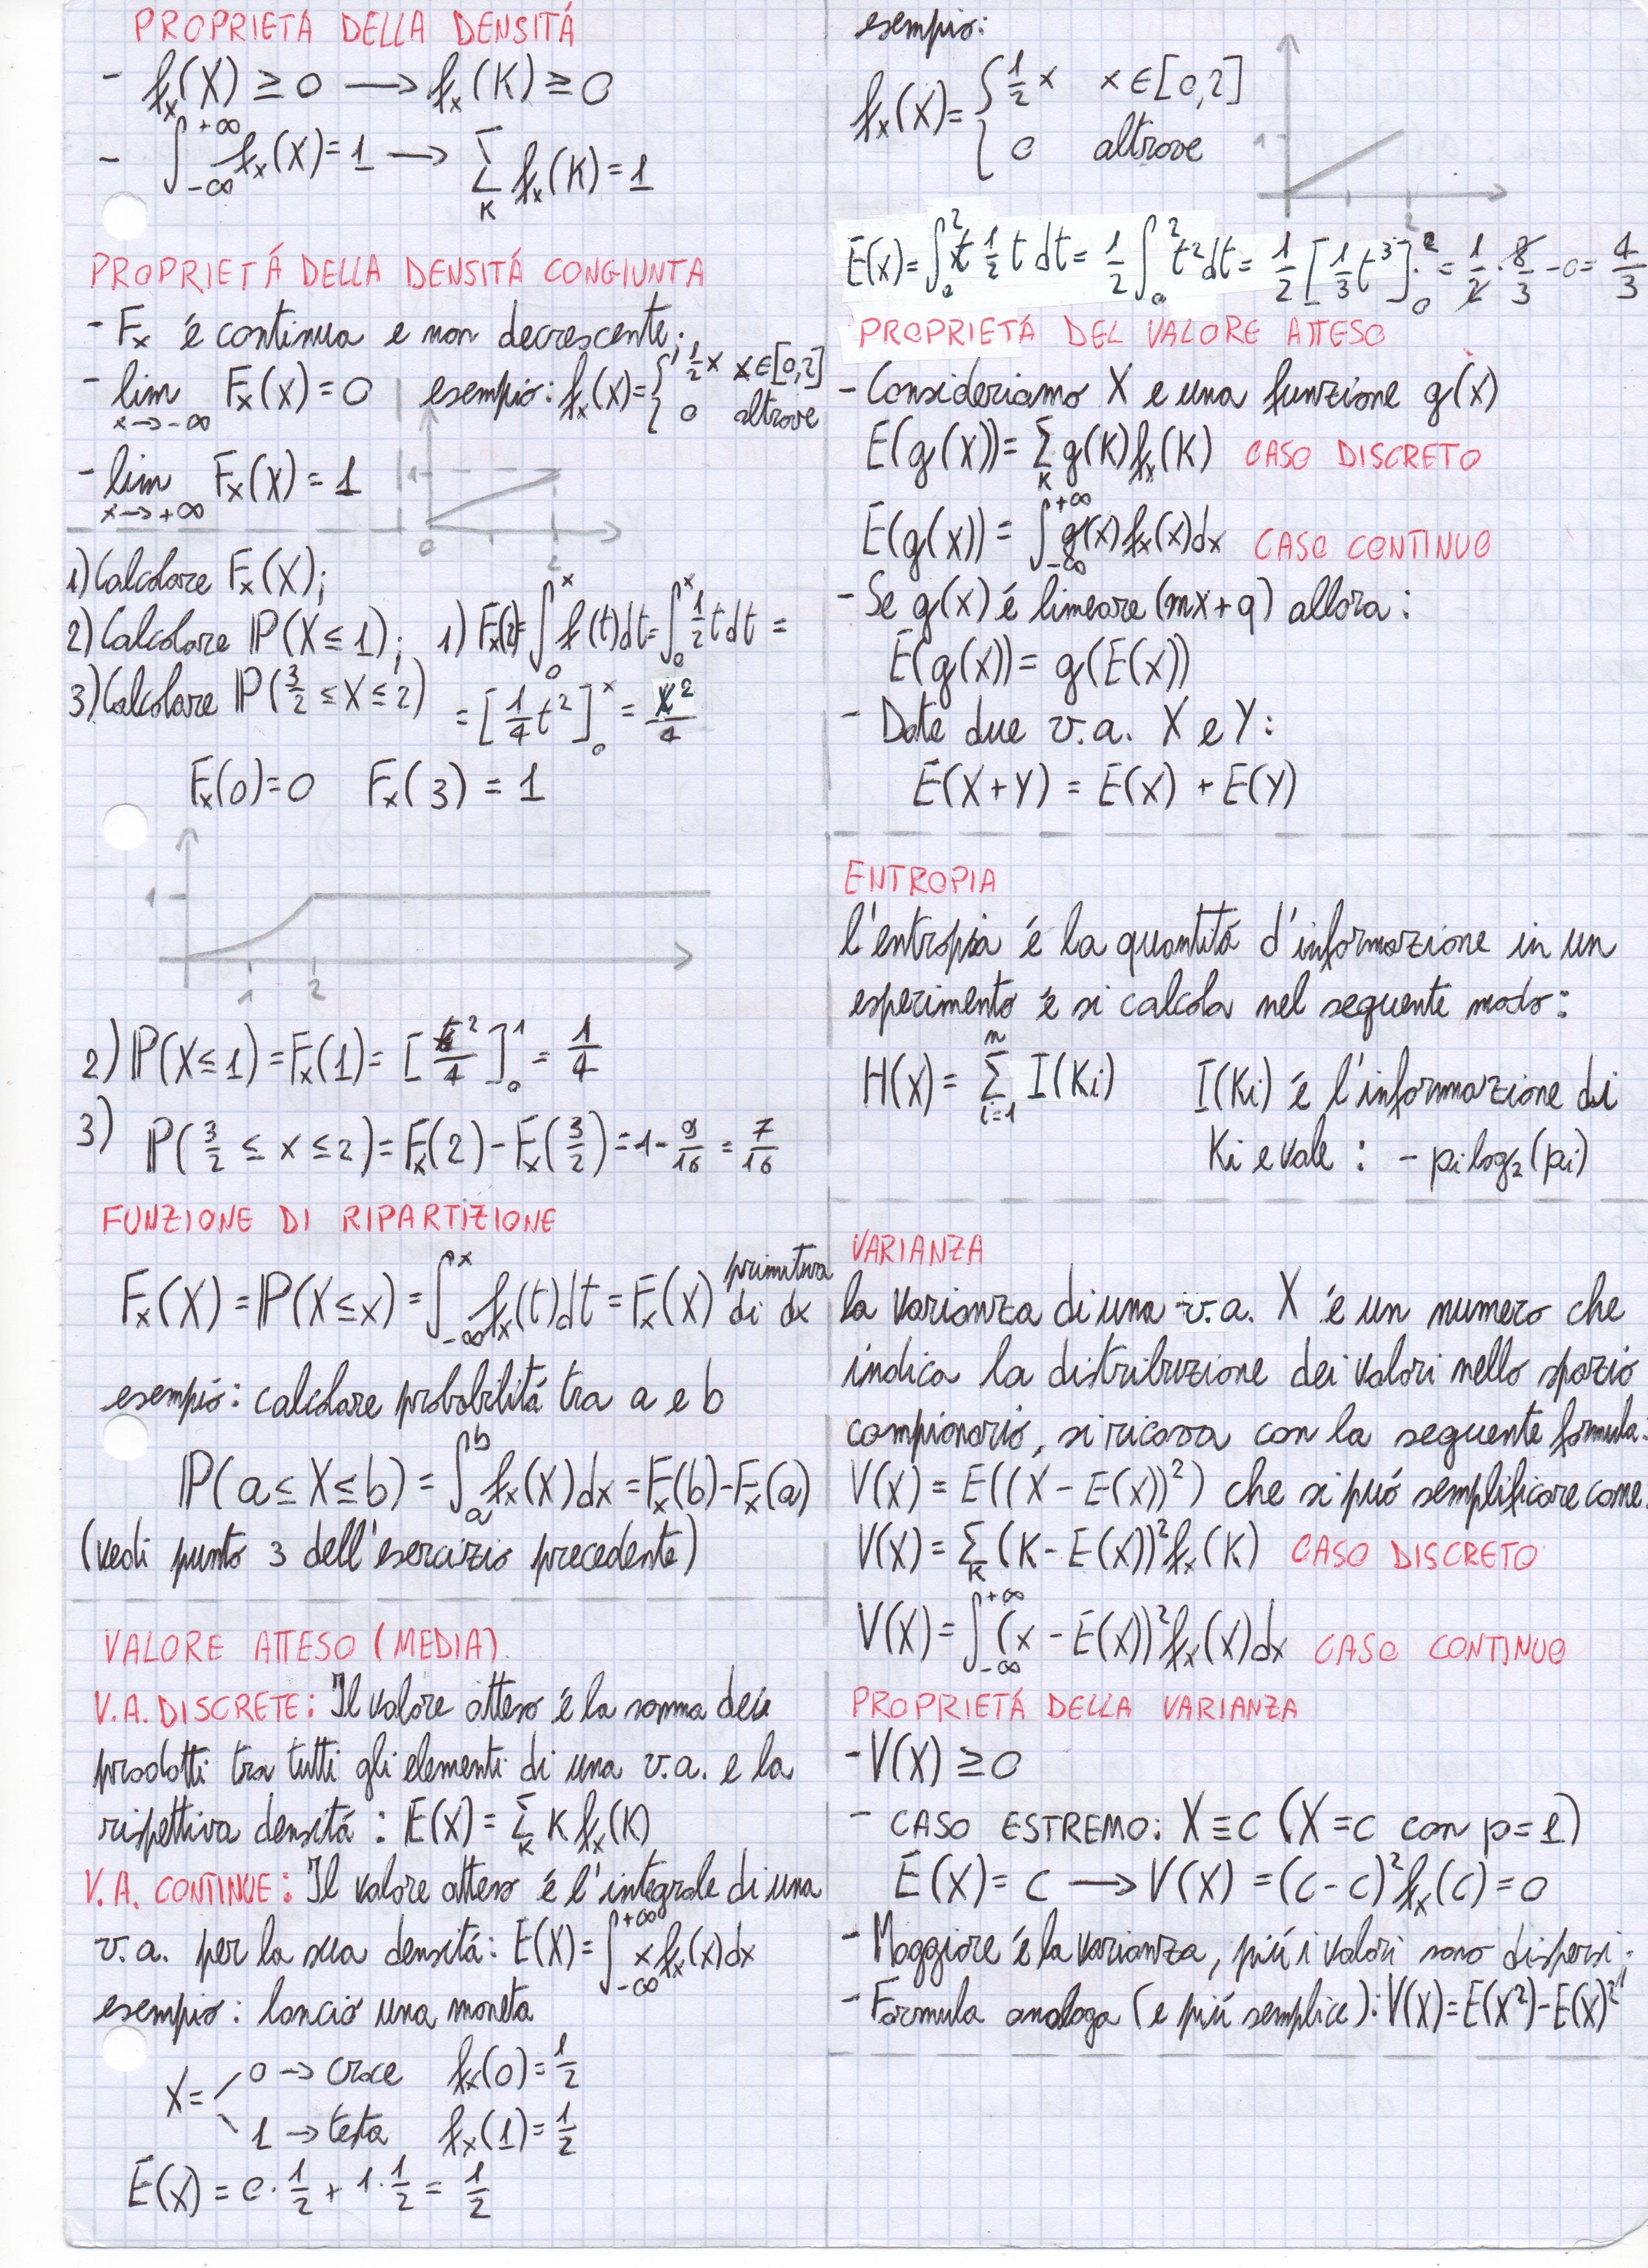 PROPRIETÁ DELLA DENSITÁ
- fx(X) ≥ 0 → fx(K) ≥ 0
- ∫_-∞^+∞ fx(X) = 1 → Σ_K fx(K) = 1
PROPRIETÁ DELLA DENSITÁ CONGIUNTA
- Fx é continua e non decrescente;
- lim x→-∞ Fx(X) = 0 esempio: fx(X) = { 1/2 x x∈[0,2]
0 altrove
- lim x→+∞ Fx(X) = 1
1
0 2
1) Calcolare Fx(X);
2) Calcolare ℙ(X ≤ 1); 1) Fx(2) = ∫_0^x f(t)dt = ∫_0^x 1/2 t dt =
3) Calcolare ℙ(3/2 ≤ X ≤ 2) = [1/4 t²]_0^x = x²/4
Fx(0) = 0 Fx(3) = 1
1
1 2
2) ℙ(X ≤ 1) = Fx(1) = [t²/4]_0^1 = 1/4
3) ℙ(3/2 ≤ x ≤ 2) = Fx(2) - Fx(3/2) = 1 - 9/16 = 7/16
FUNZIONE DI RIPARTIZIONE
Fx(X) = ℙ(X ≤ x) = ∫_-∞^x fx(t)dt = Fx(X) primitiva di dx
esempio: calcolare probabilitá tra a e b
ℙ(a ≤ X ≤ b) = ∫_a^b fx(X)dx = Fx(b) - Fx(a)
(vedi punto 3 dell'esercizio precedente)
VALORE ATTESO (MEDIA)
V.A. DISCRETE: Il valore atteso é la somma dei
prodotti tra tutti gli elementi di una v.a. e la
rispettiva densitá: E(X) = Σ_K K fx(K)
V.A. CONTINUE: Il valore atteso é l'integrale di una
v.a. per la sua densitá: E(X) = ∫_-∞^+∞ x fx(x)dx
esempio: lancio una moneta
X = 0 → croce fx(0) = 1/2
1 → testa fx(1) = 1/2
E(X) = 0·1/2 + 1·1/2 = 1/2
esempio:
fx(X) = { 1/2 x x∈[0,2]
0 altrove
1
2
E(x) = ∫_0^2 t 1/2 t dt = 1/2 ∫_0^2 t² dt = 1/2 [1/3 t³]_0^2 = 1/2 · 8/3 - 0 = 4/3
PROPRIETÁ DEL VALORE ATTESO
- Consideriamo X e una funzione g(x)
E(g(X)) = Σ_K g(K)fx(K) CASO DISCRETO
E(g(x)) = ∫_-∞^+∞ g(x)fx(x)dx CASO CONTINUO
- Se g(x) é lineare (mx+q) allora:
E(g(x)) = g(E(x))
- Date due v.a. X e Y:
E(X+Y) = E(x) + E(Y)
ENTROPIA
l'entropia é la quantitá d'informazione in un
esperimento é si calcola nel seguente modo:
H(x) = Σ_i=1^n I(Ki) I(Ki) é l'informazione di
Ki e vale: - pi log₂(pi)
VARIANZA
la varianza di una v.a. X é un numero che
indica la distribuzione dei valori nello spazio
campionario, si ricava con la seguente formula.
V(X) = E((X - E(x))²) che si puó semplificare come.
V(X) = Σ_K (K - E(x))² fx(K) CASO DISCRETO
V(X) = ∫_-∞^+∞ (x - E(x))² fx(x)dx CASO CONTINUO
PROPRIETÁ DELLA VARIANZA
- V(X) ≥ 0
- CASO ESTREMO: X ≡ c (X = c con p = 1)
E(X) = c → V(X) = (c - c)² fx(c) = 0
- Maggiore é la varianza, piú i valori sono dispersi;
- Formula analoga (e piú semplice): V(X) = E(X²) - E(X)²